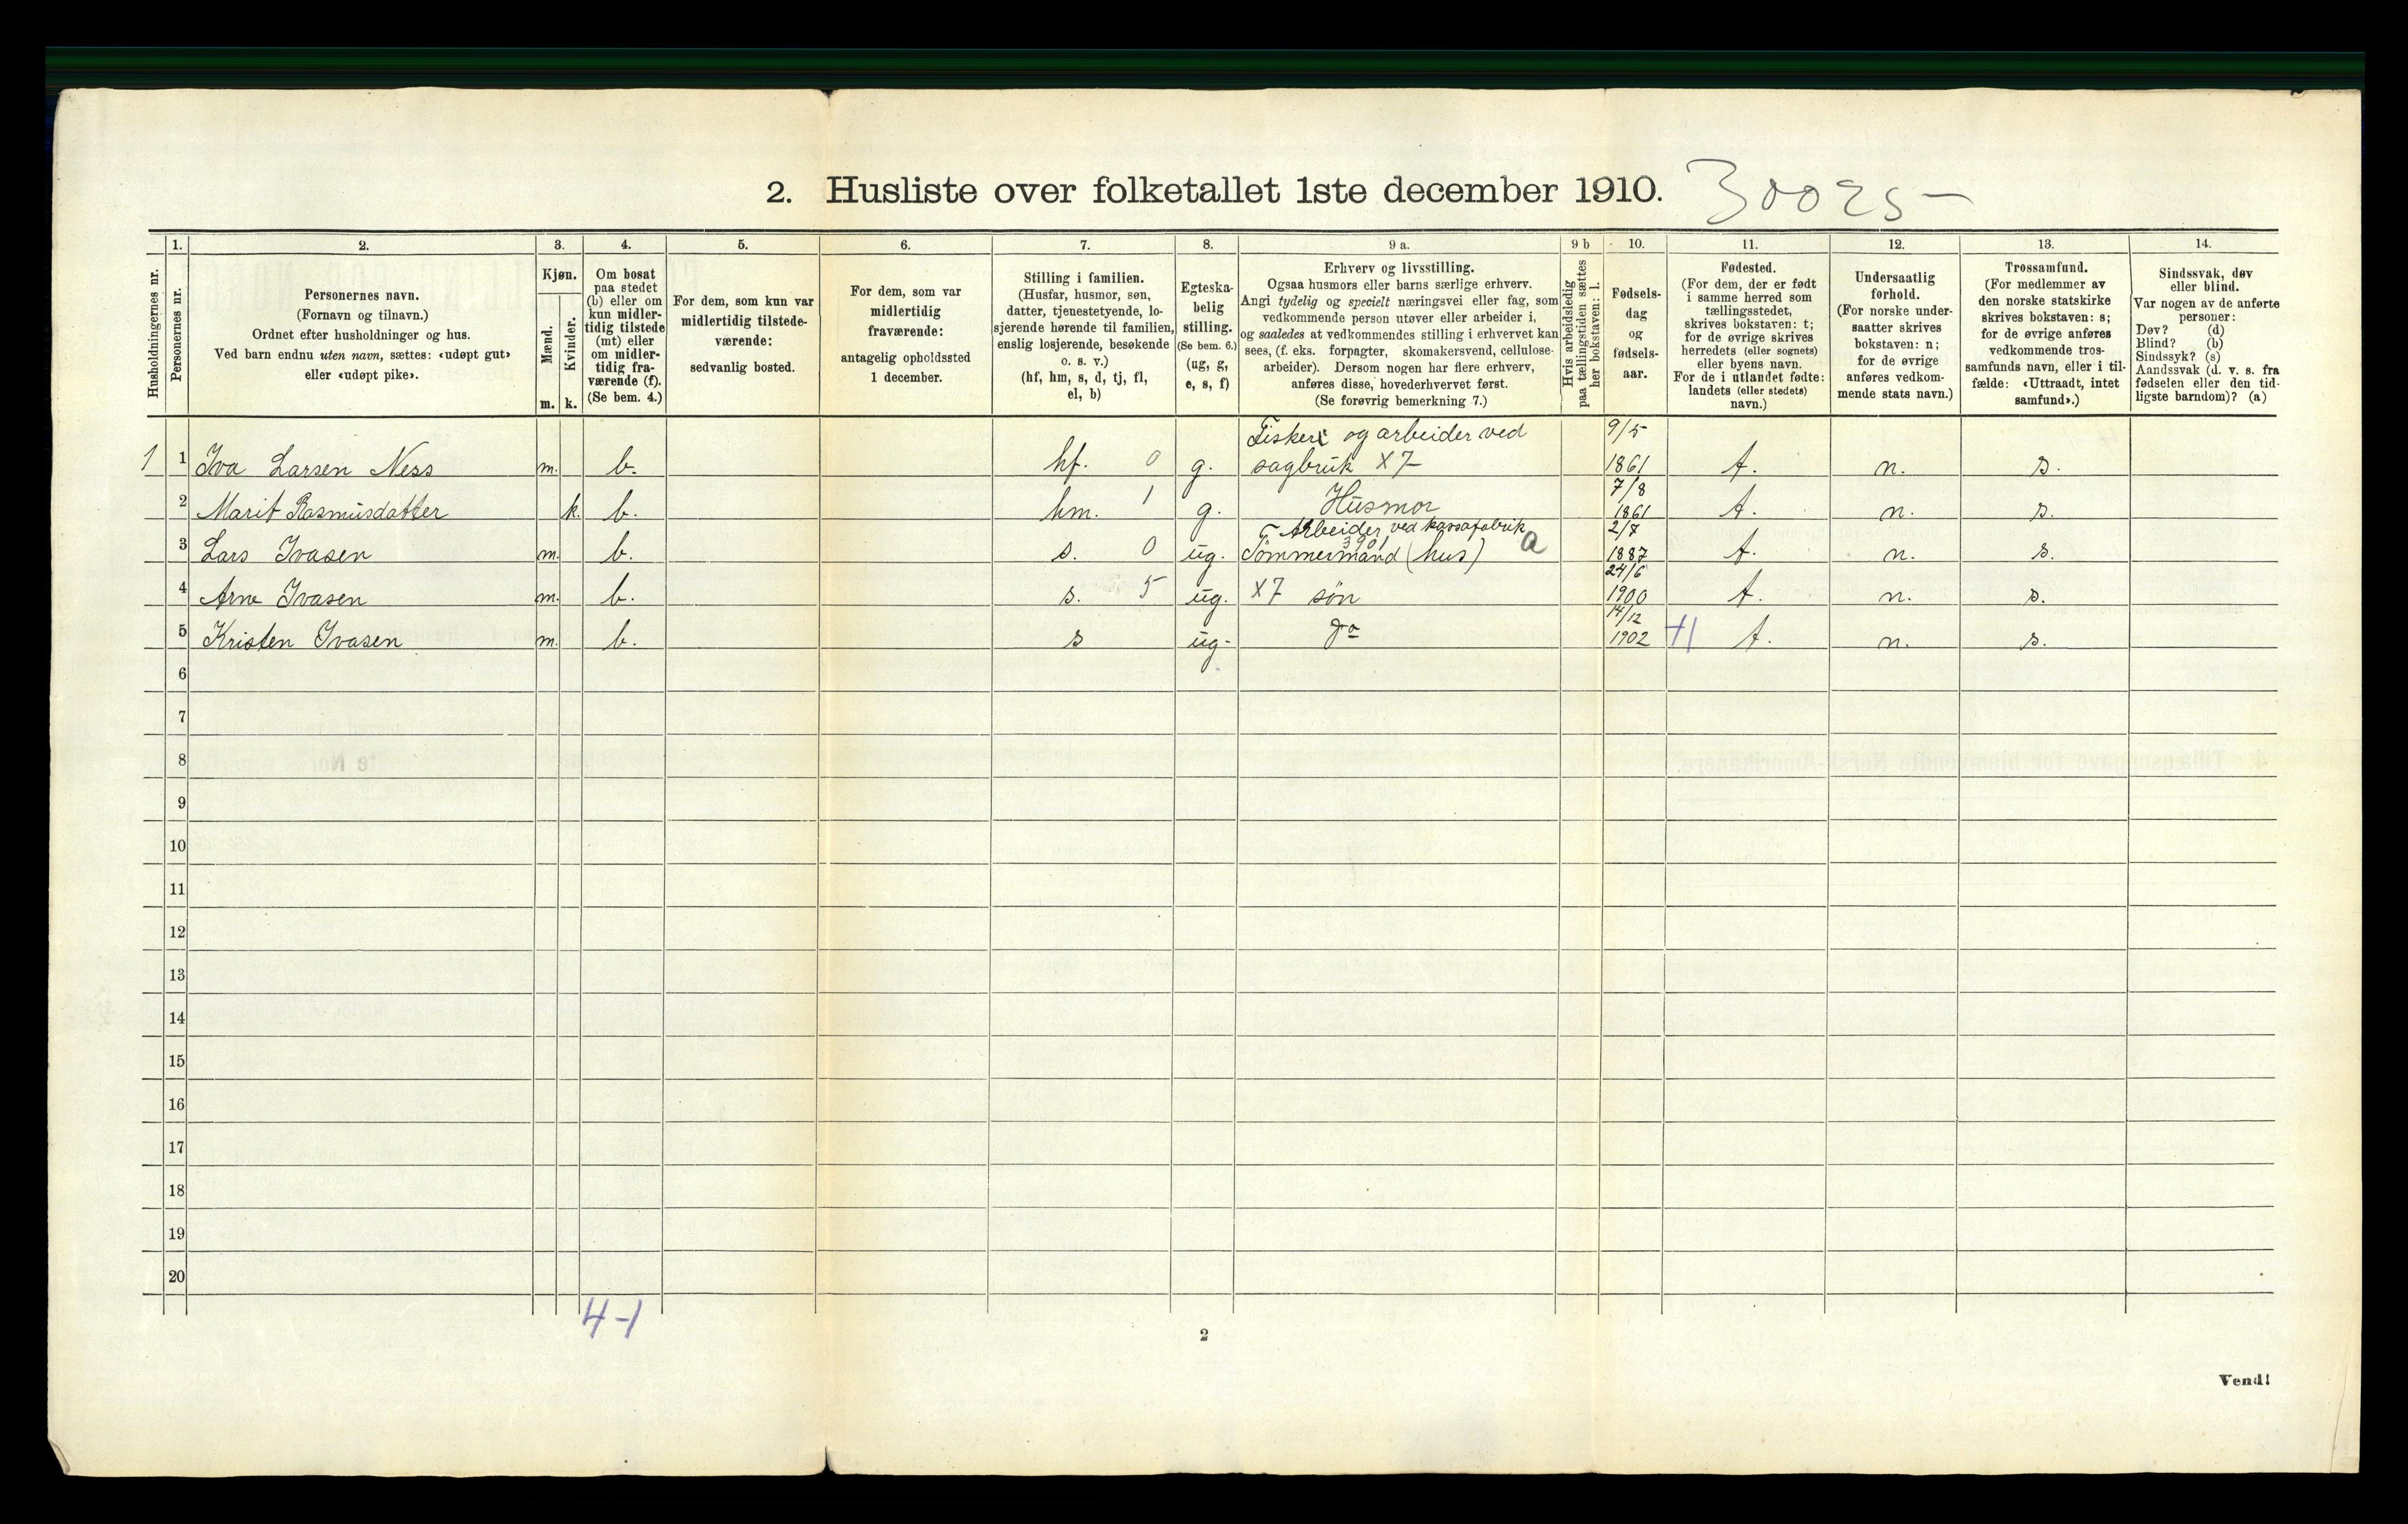 2. Husliste over folketallet 1ste december 1910. 30025-
Husholdningernes nr.
1.
Personernes nr.
2.
Personernes navn.
(Fornavn og tilnavn.)
Ordnet efter husholdninger og hus.
Ved barn endnu uten navn, sættes: «udøpt gut»
eller «udøpt pike».
3.
Kjøn.
Mænd.
Kvinder.
m. k.
4.
Om bosat
paa stedet
(b) eller om
kun midler-
tidig tilstede
(mt) eller
om midler-
tidig fra-
værende (f).
(Se bem. 4.)
5.
For dem, som kun var
midlertidig tilstede-
værende:
sedvanlig bosted.
6.
For dem, som var
midlertidig
fraværende:
antagelig opholdssted
1 december.
7.
Stilling i familien.
(Husfar, husmor, søn,
datter, tjenestetyende, lo-
sjerende hørende til familien,
enslig losjerende, besøkende
o. s. v.)
(hf, hm, s, d, tj, fl,
el, b)
8.
Egteska-
belig
stilling.
(Se bem. 6.)
(ug, g,
e, s, f)
9 a.
Erhverv og livsstilling.
Ogsaa husmors eller barns særlige erhverv.
Angi tydelig og specielt næringsvei eller fag, som
vedkommende person utøver eller arbeider i,
og saaledes at vedkommendes stilling i erhvervet kan
sees, (f. eks. forpagter, skomakersvend, cellulose-
arbeider). Dersom nogen har flere erhverv,
anføres disse, hovederhvervet først.
(Se forøvrig bemerkning 7.)
9 b
Hvis arbeidsledig
paa tællingstiden sættes
her bokstaven: l.
10.
Fødsels-
dag
og
fødsels-
aar.
11.
Fødested.
(For dem, der er født
i samme herred som
tællingsstedet,
skrives bokstaven: t;
for de øvrige skrives
herredets (eller sognets)
eller byens navn.
For de i utlandet fødte:
landets (eller stedets)
navn.)
12.
Undersaatlig
forhold.
(For norske under-
saatter skrives
bokstaven: n;
for de øvrige
anføres vedkom-
mende stats navn.)
13.
Trossamfund.
(For medlemmer av
den norske statskirke
skrives bokstaven: s;
for de øvrige anføres
vedkommende tros-
samfunds navn, eller i til-
fælde: «Uttraadt, intet
samfund».)
14.
Sindssvak, døv
eller blind.
Var nogen av de anførte
personer:
Døv? (d)
Blind? (b)
Sindssyk? (s)
Aandssvak (d. v. s. fra
fødselen eller den tid-
ligste barndom)? (a)
Fisker og arbeider ved 9/5
1 1 Iva Larsen Ness m. b. hf. 0 g. sagbruk X7 1861 t. n. s.
7/8
2 Marit Rasmusdatter k. b. hm. 1 g. Husmor 1861 t. n. s.
Arbeider ved kassafabrik 2/7
3901
3 Lars Ivasen m. b. s. 0 ug. Tömmermand (hus) a 1887 t. n. s.
24/6
4 Arne Ivasen m. b. s. 5 ug. X7 sön 1900 t. n. s.
14/12
5 Kristen Ivasen m. b. s ug. do 1902 t. n. s.
6
7
8
9
10
11
12
13
14
15
16
17
18
19
20
4-1
2
Vend!